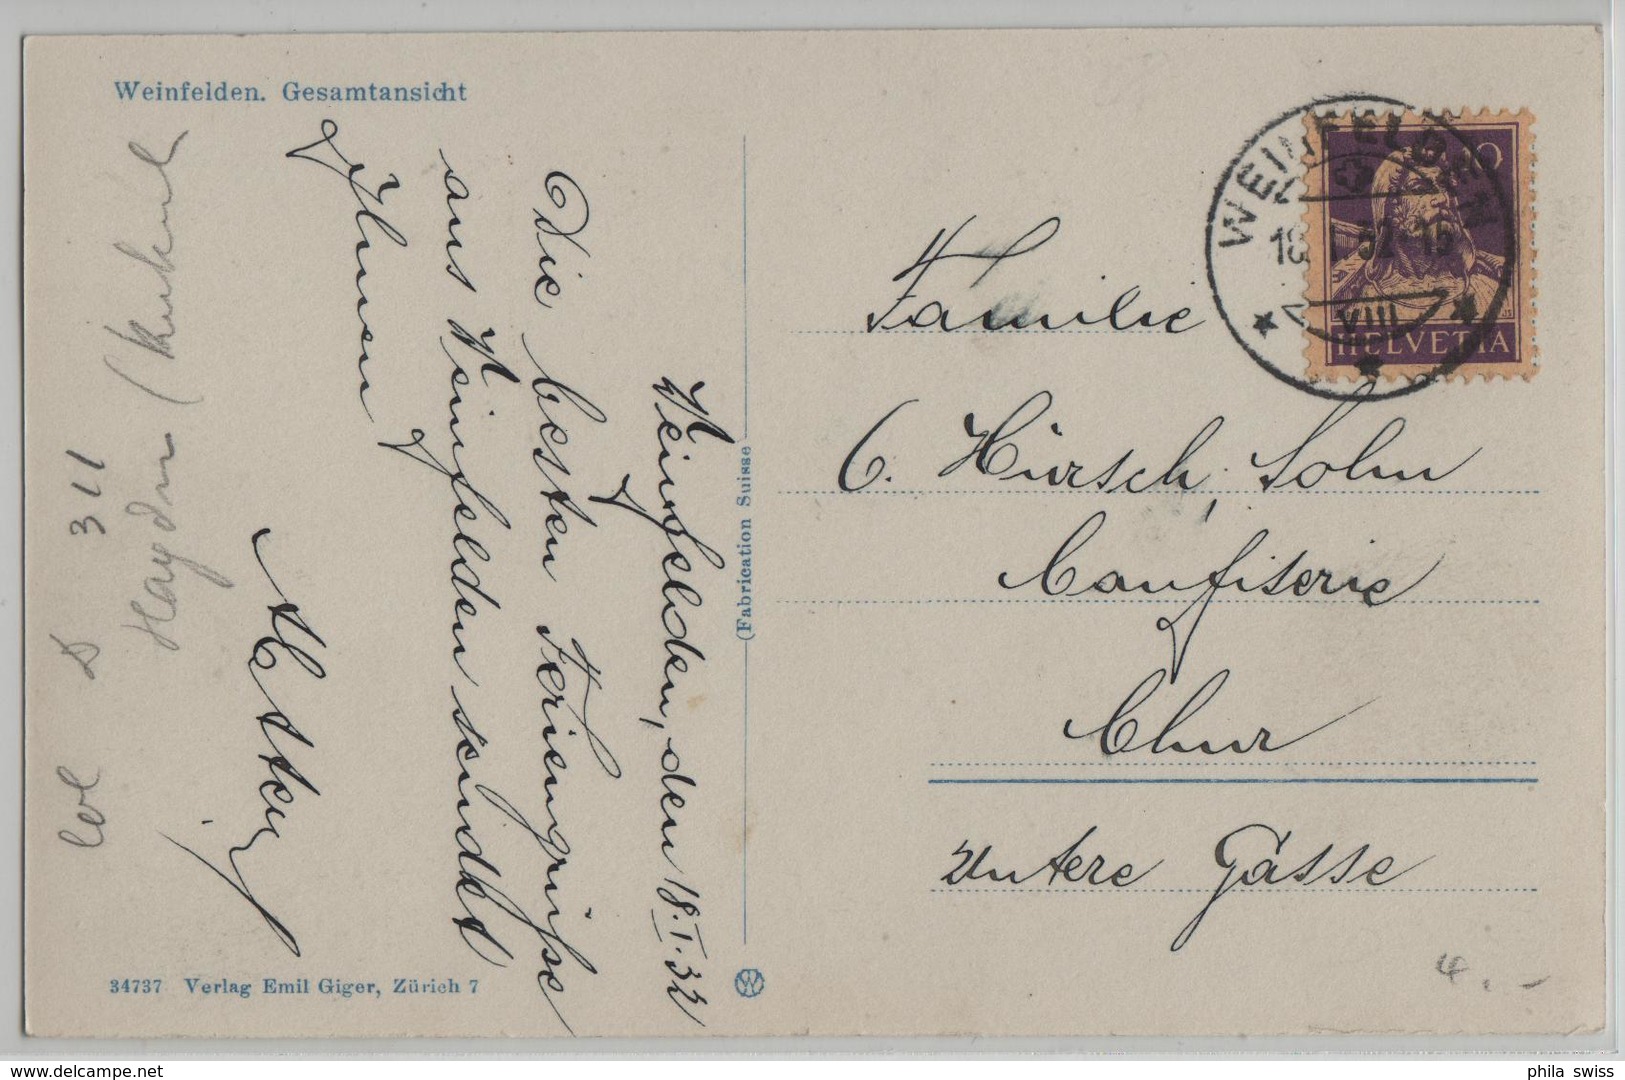 Weinfelden. Gesamtansicht
Weinfelden, den 18.I.32
Die besten Feriengrüsse
aus Weinfelden sendet
Ihnen
(Fabrication Suisse
34737 Verlag Emil Giger, Zürich 7
W
WEINFELDEN
VIII
10
HELVETIA
Familie
C. Hürsch, Sohn
Confiserie
Chur
Untere Gasse
311
4.-
delcampe.net
phila swiss